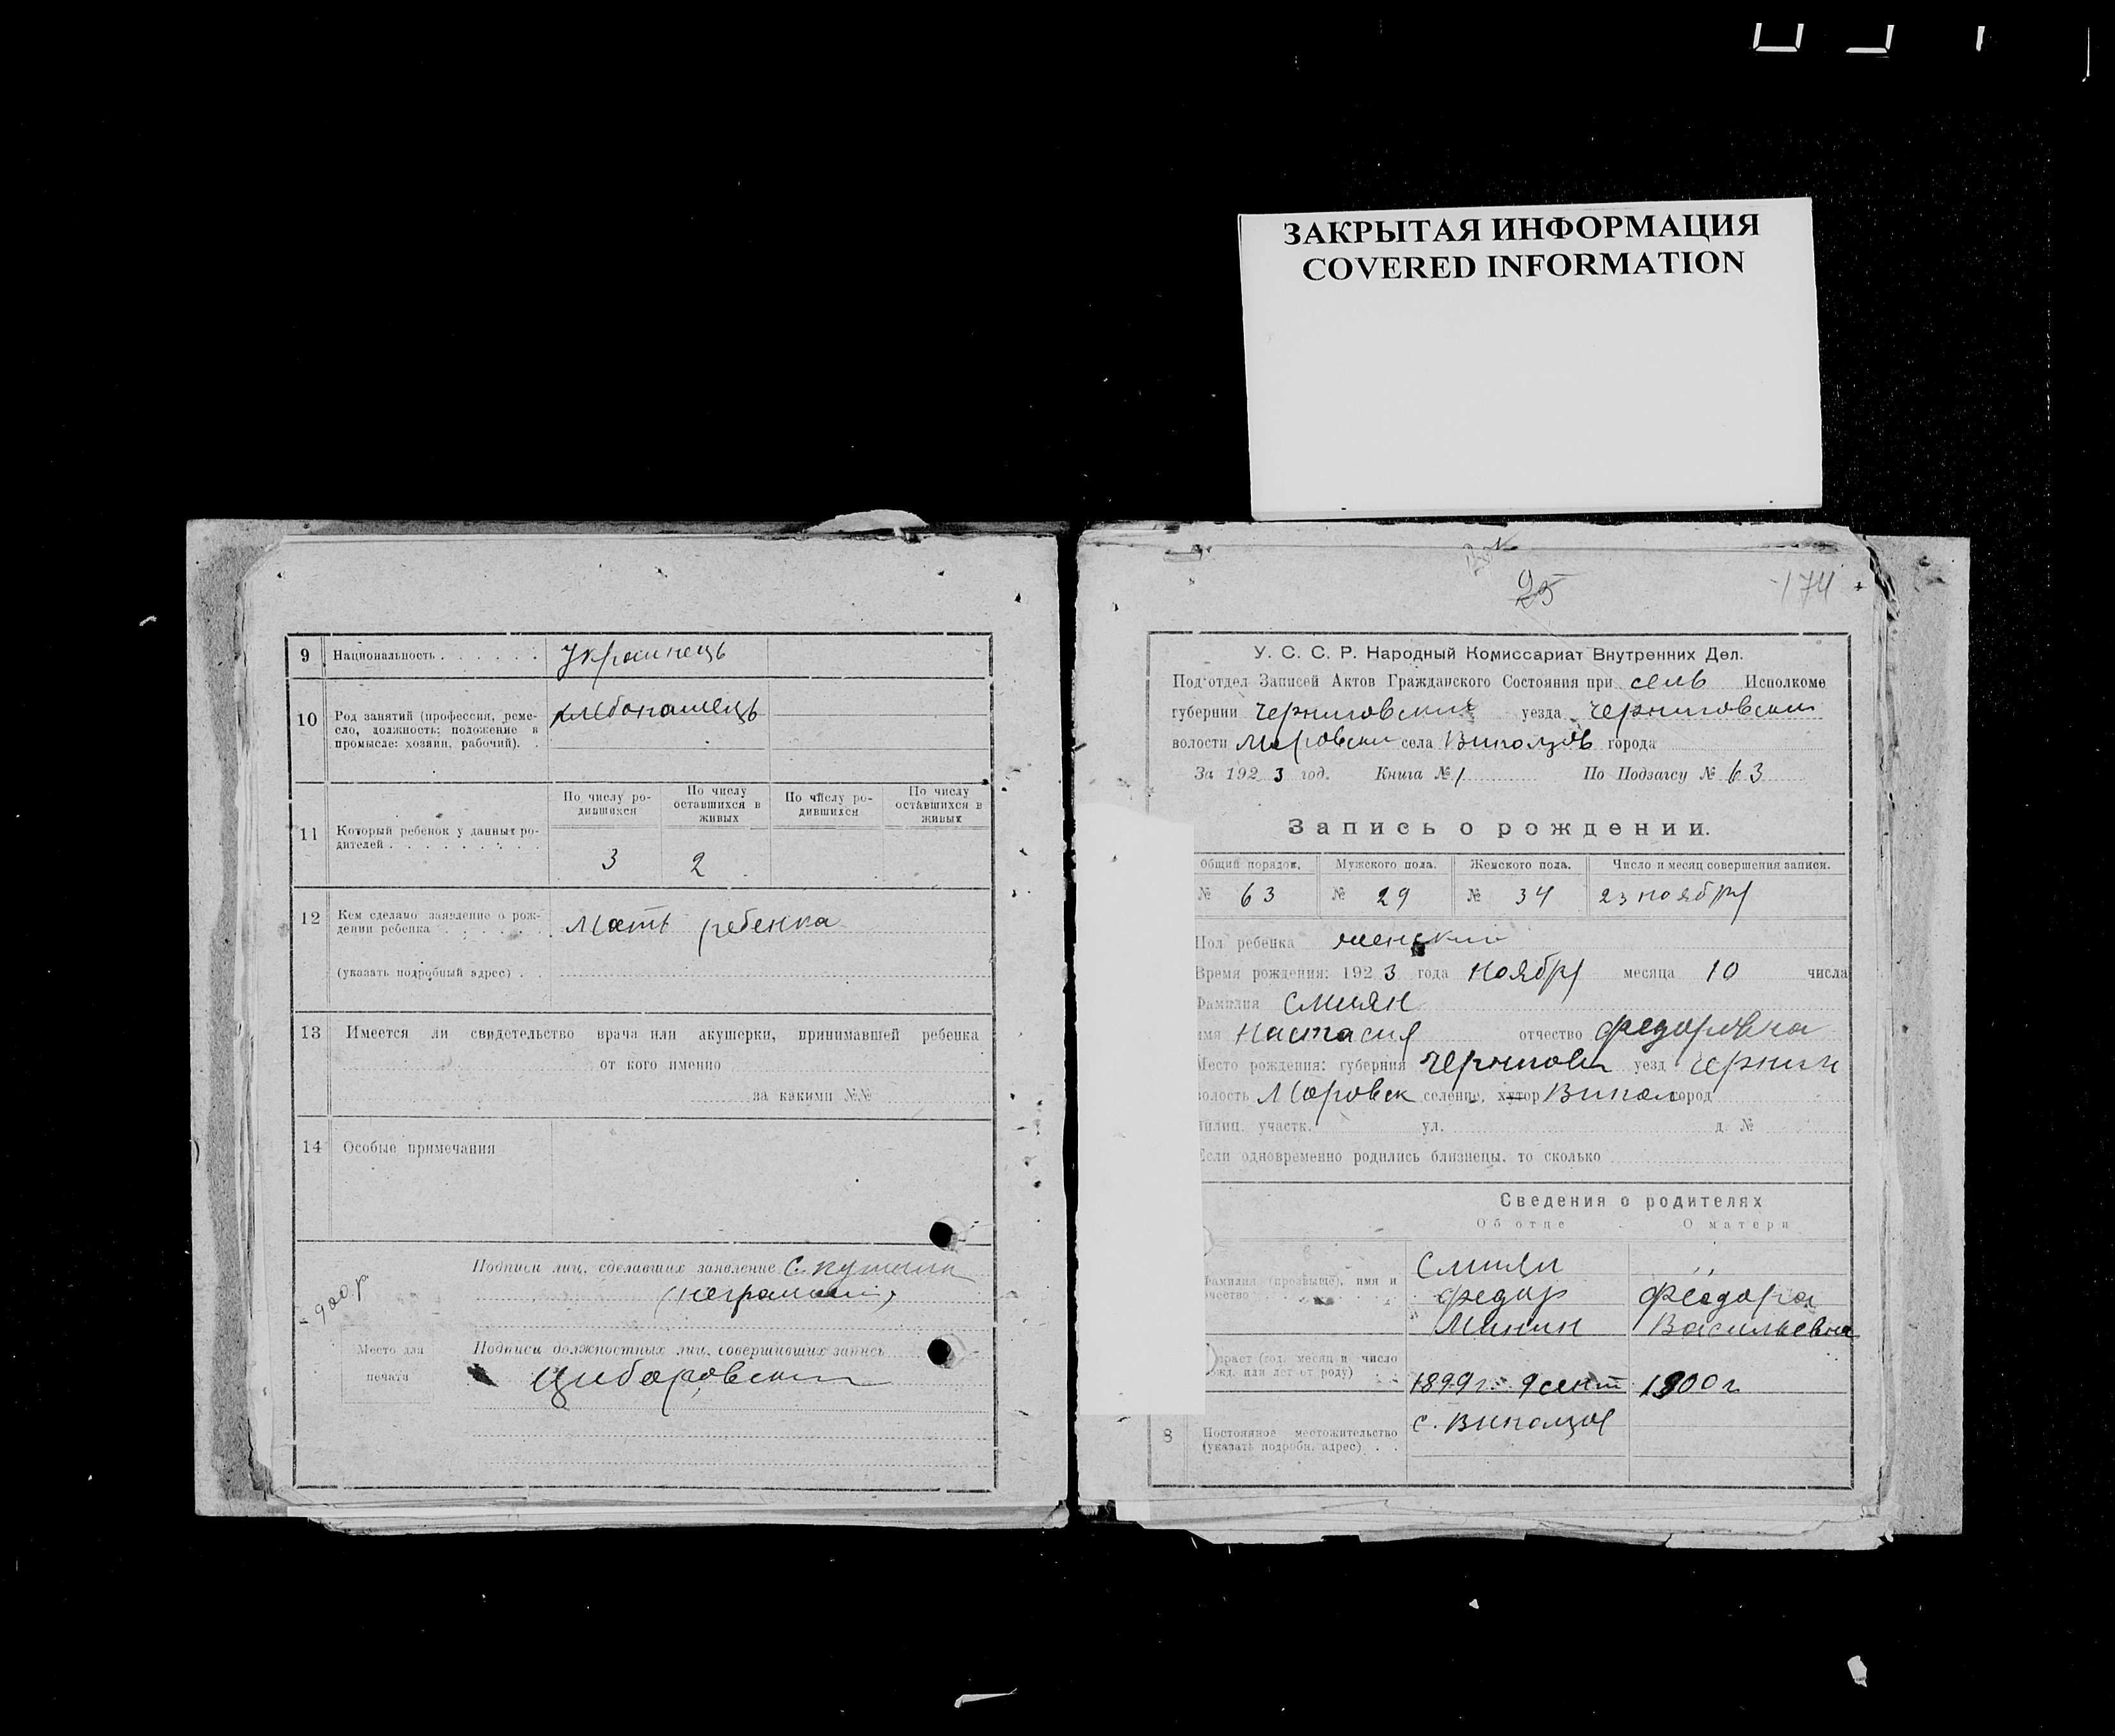 ЗАКРЫТАЯ ИНФОРМАЦИЯ
COVERED INFORMATION
9 Национальность . . . . . . Украинець
10 Род занятий (профессия, реме-
сло, должность; положение в
промысле: хозяин, рабочий). .
хлебопашець
По числу ро-
дившихся
По числу
оставшихся в
живых
По числу ро-
дившихся
По числу
оставшихся в
живых
11 Который ребенок у данных ро-
дителей . . . . . . . . .
3 2
12 Кем сделано заявление о рож-
дении ребенка . . . . . . Мать ребенка
(указать подробный адрес) . .
13 Имеется ли свидетельство врача или акушерки, принимавшей ребенка
от кого именно
за какими №№
14 Особые примечания
Подписи лиц, сделавших заявление
900р
Место для
печати
Подписи должностных лиц, совершивших запись
25
174
У. С. С. Р. Народный Комиссариат Внутренних Дел.
Под'отдел Записей Актов Гражданского Состояния при сель Исполкоме
губернии Черниговский уезда Черниговский
волости Моровски села города
За 192 3 год. Книга № 1 По Подзагсу № 63
Запись о рождении.
Общий порядок. Мужского пола. Женского пола. Число и месяц совершения записи.
№ 63 № 29 № 34 23 ноября
Пол ребенка женский
Время рождения: 192 3 года ноября месяца 10 числа
Фамилия Смиян
имя Настасия отчество Федоровна
Место рождения: губерния уезд Черниг
волость Моровск селение, хутор Випол город
милиц. участк. ул. д. №
Если одновременно родились близнецы, то сколько
Сведения о родителях
Об отце О матери
Фамилия (прозвище), имя и
отчество
Смиян
Федор Феодора
Минин Васильевна
Возраст (год, месяц и число
рожд. или лет от роду) . . 1899 г. 9 сент 1900 г
8 Постоянное местожительство
(указать подробн. адрес) . .